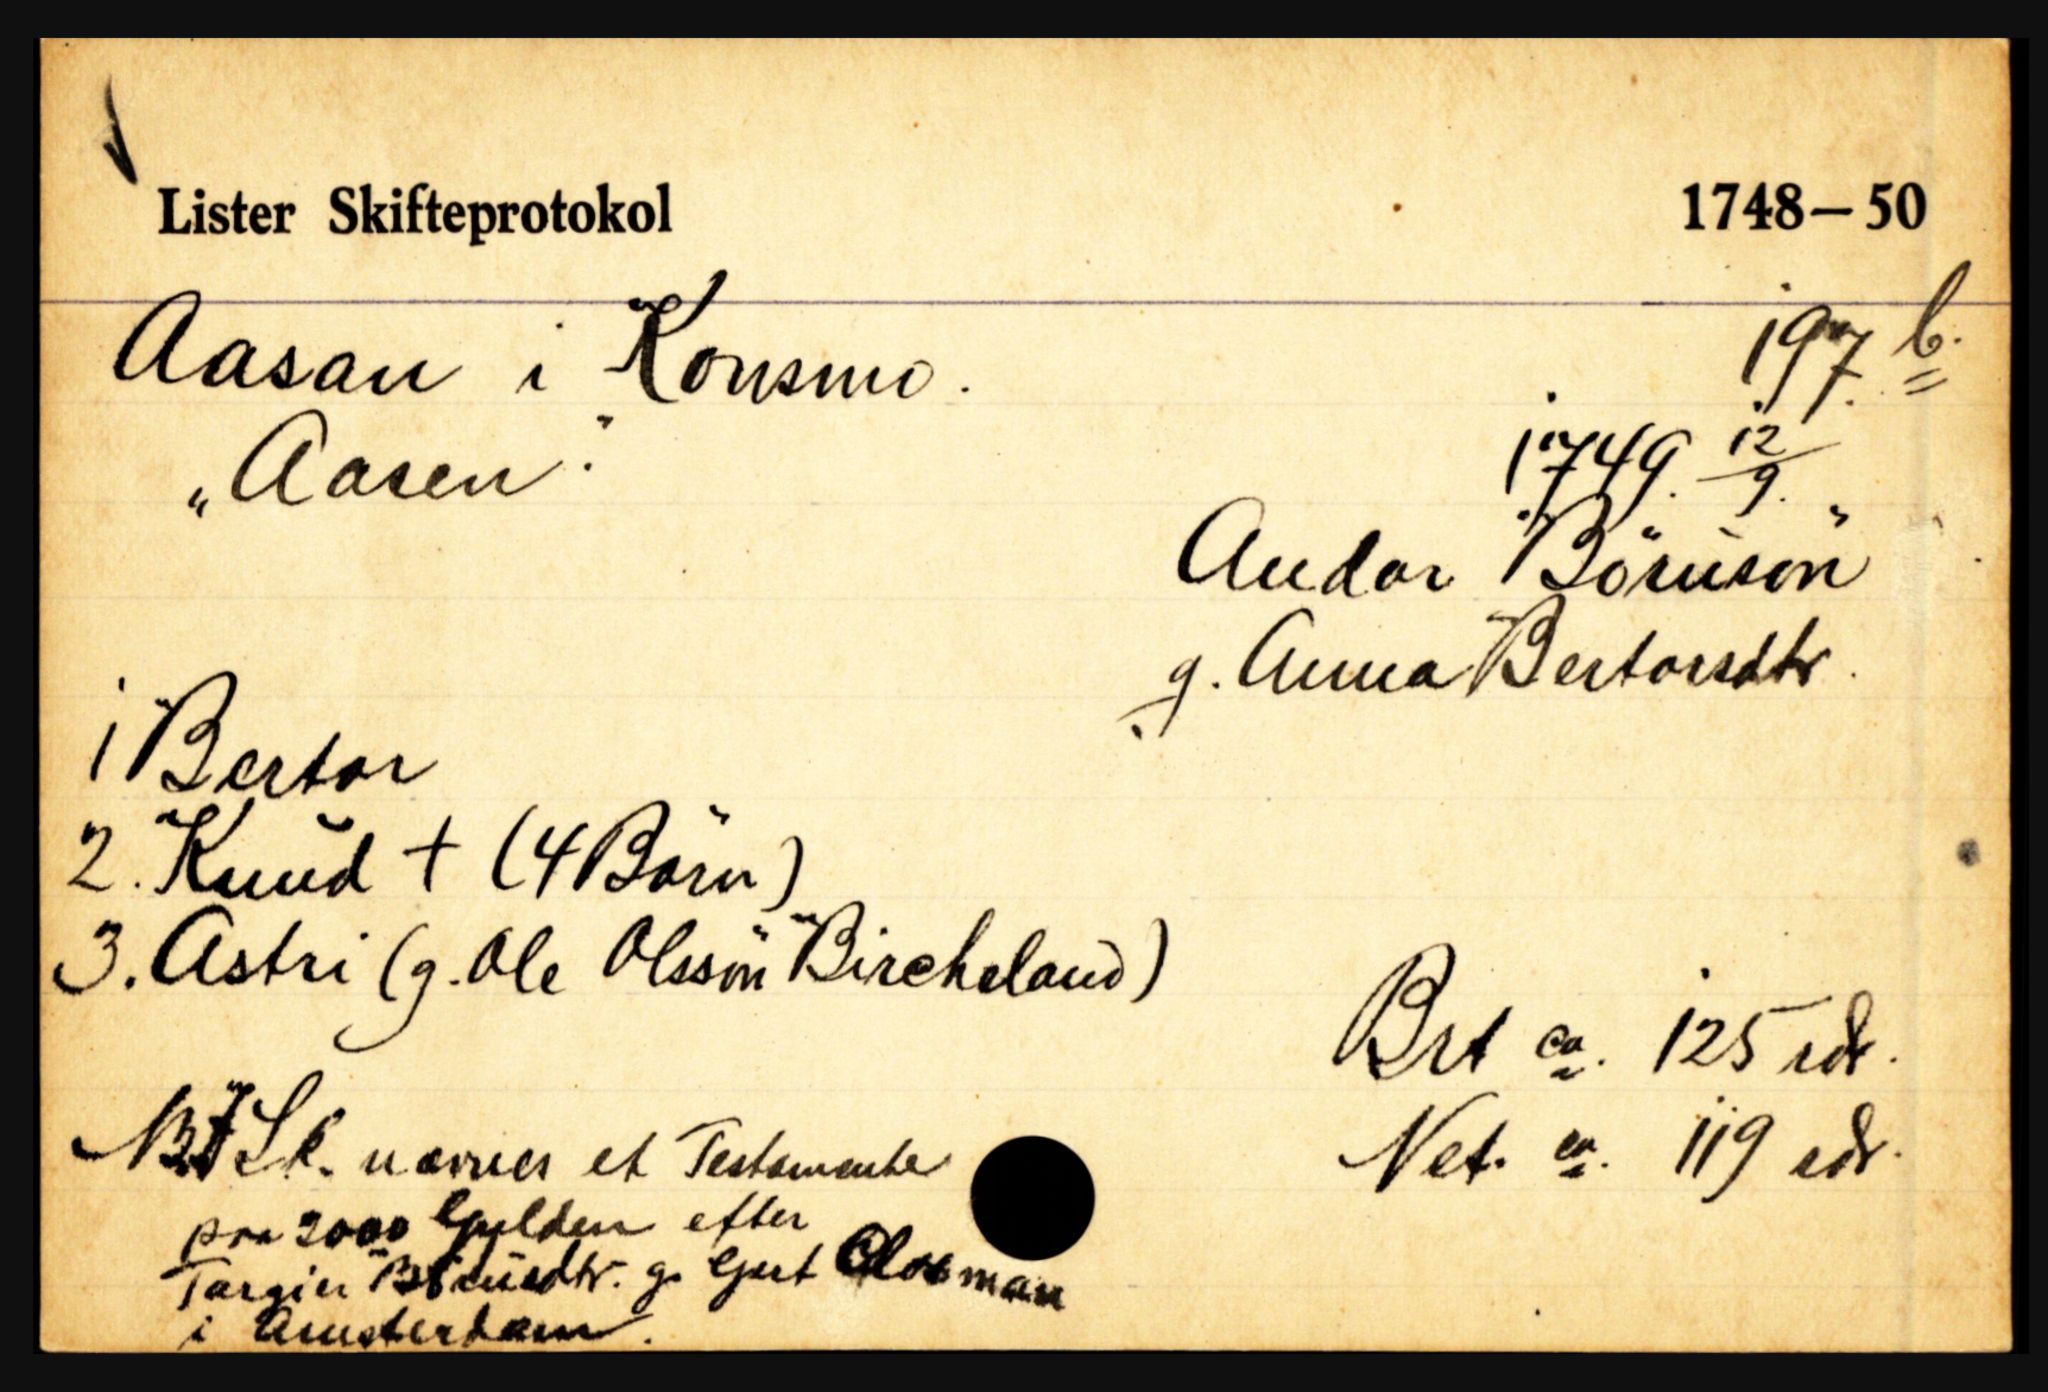 Lister Skifteprotokol 1748–50
Aasan i Konsmo. 197 b.
„Aasen". 1749. 12/9.
Andor Börüsön
g. Anna Bertorsdtr.
1 Bertor
2. Knud † (4 Börn)
3. Astri (g. Ole Olssön Bircheland)
Brt ca. 125 rdr.
Net. ca. 119 rdr.
NB I Sk. nævnes et Testamente
pra 2000 Gylden efter
Targier g. Gert
i Amsterdam.